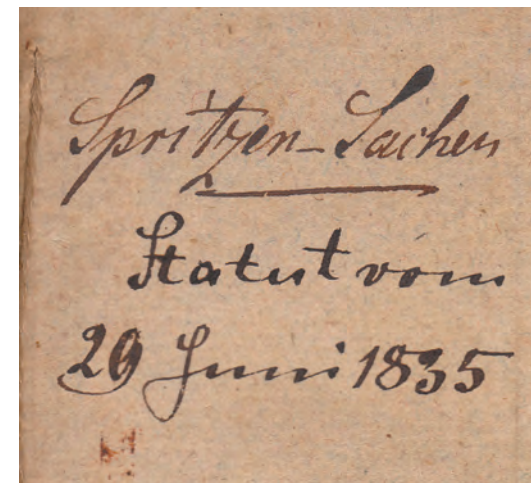 Spritzen-Sachen
Statut vom
29 Juni 1835